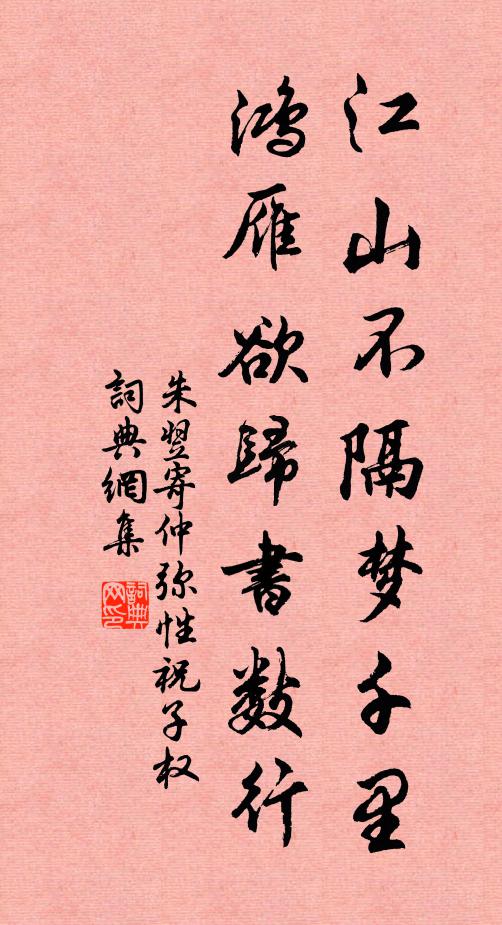 江山不隔梦千里
鸿雁欲歸書数行
朱翌寄仲弥性祝子权
詞典網集
詞典网印